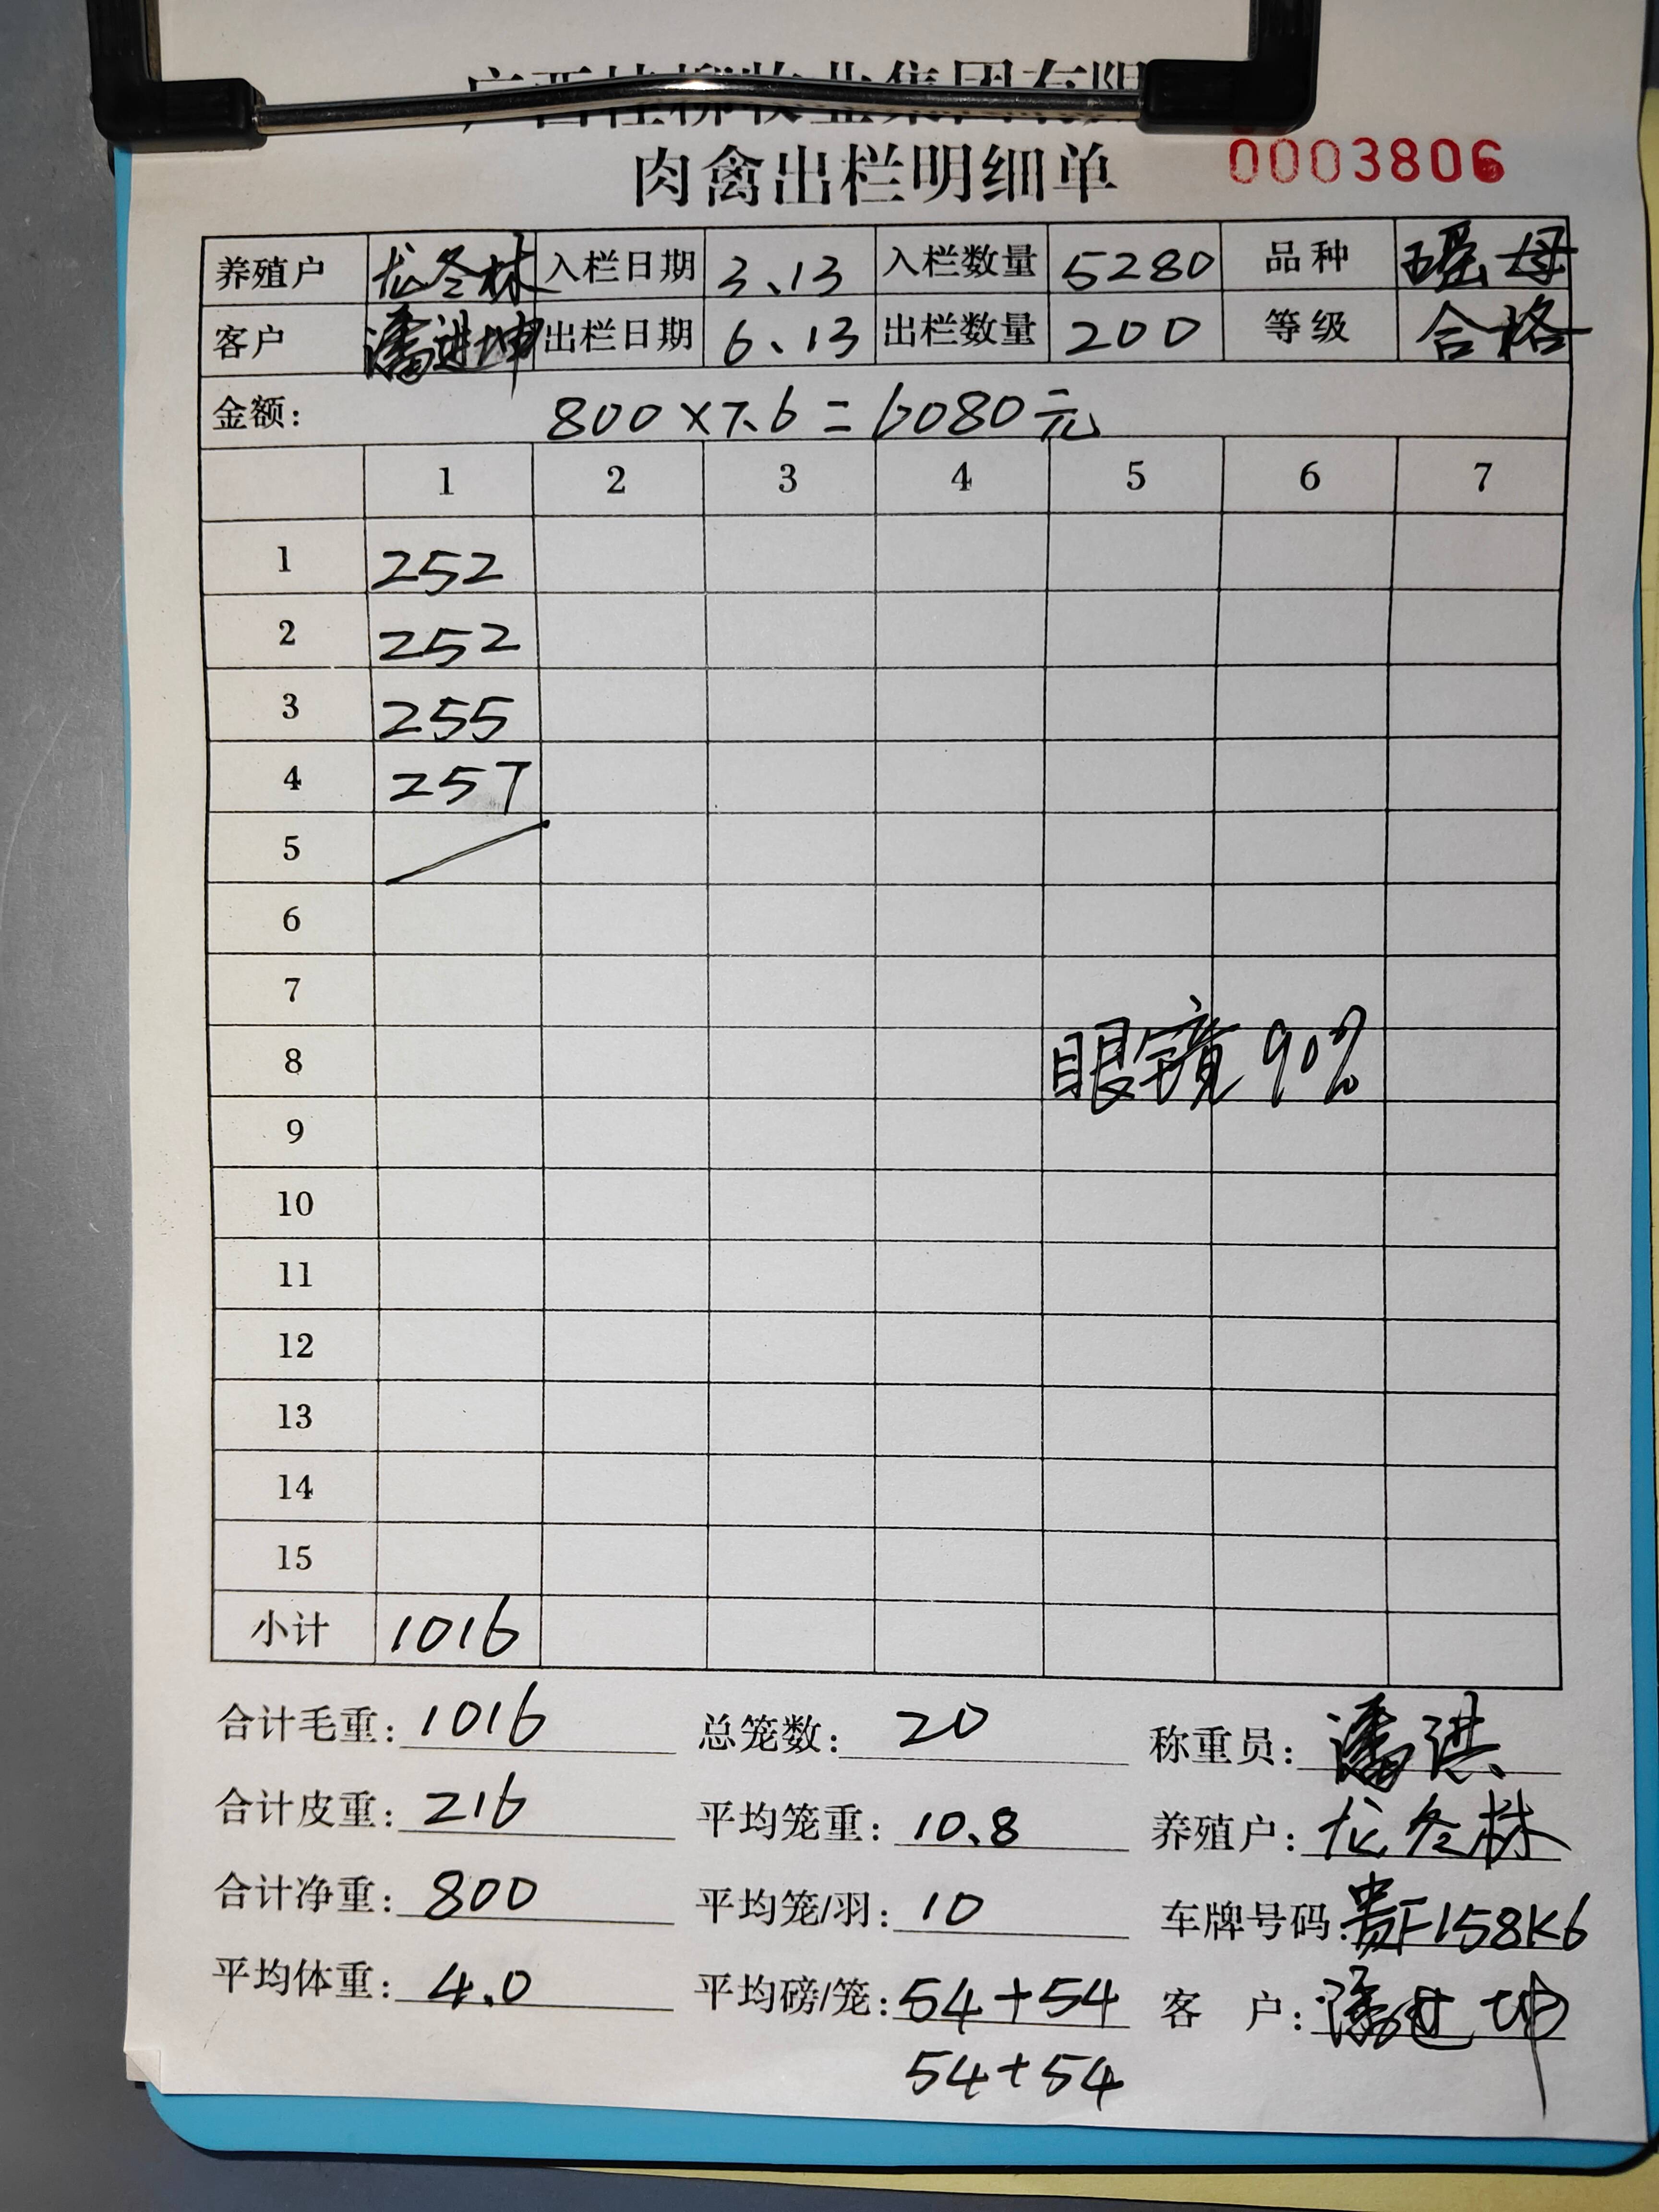 广西桂柳牧业集团有限
肉禽出栏明细单 0003806
养殖户 龙冬林 入栏日期 3、13 入栏数量 5280 品种 瑶母
客户 潘进坤 出栏日期 6、13 出栏数量 200 等级 合格
金额: 800×7.6=6080元
1 2 3 4 5 6 7
1 252
2 252
3 255
4 257
5
6
7
8 眼镜90%
9
10
11
12
13
14
15
小计 1016
合计毛重: 1016 总笼数: 20 称重员: 潘洪
合计皮重: 216 平均笼重: 10.8 养殖户: 龙冬林
合计净重: 800 平均笼/羽: 10 车牌号码: 贵F158K6
平均体重: 4.0 平均磅/笼: 54+54 客户: 潘进坤
54+54